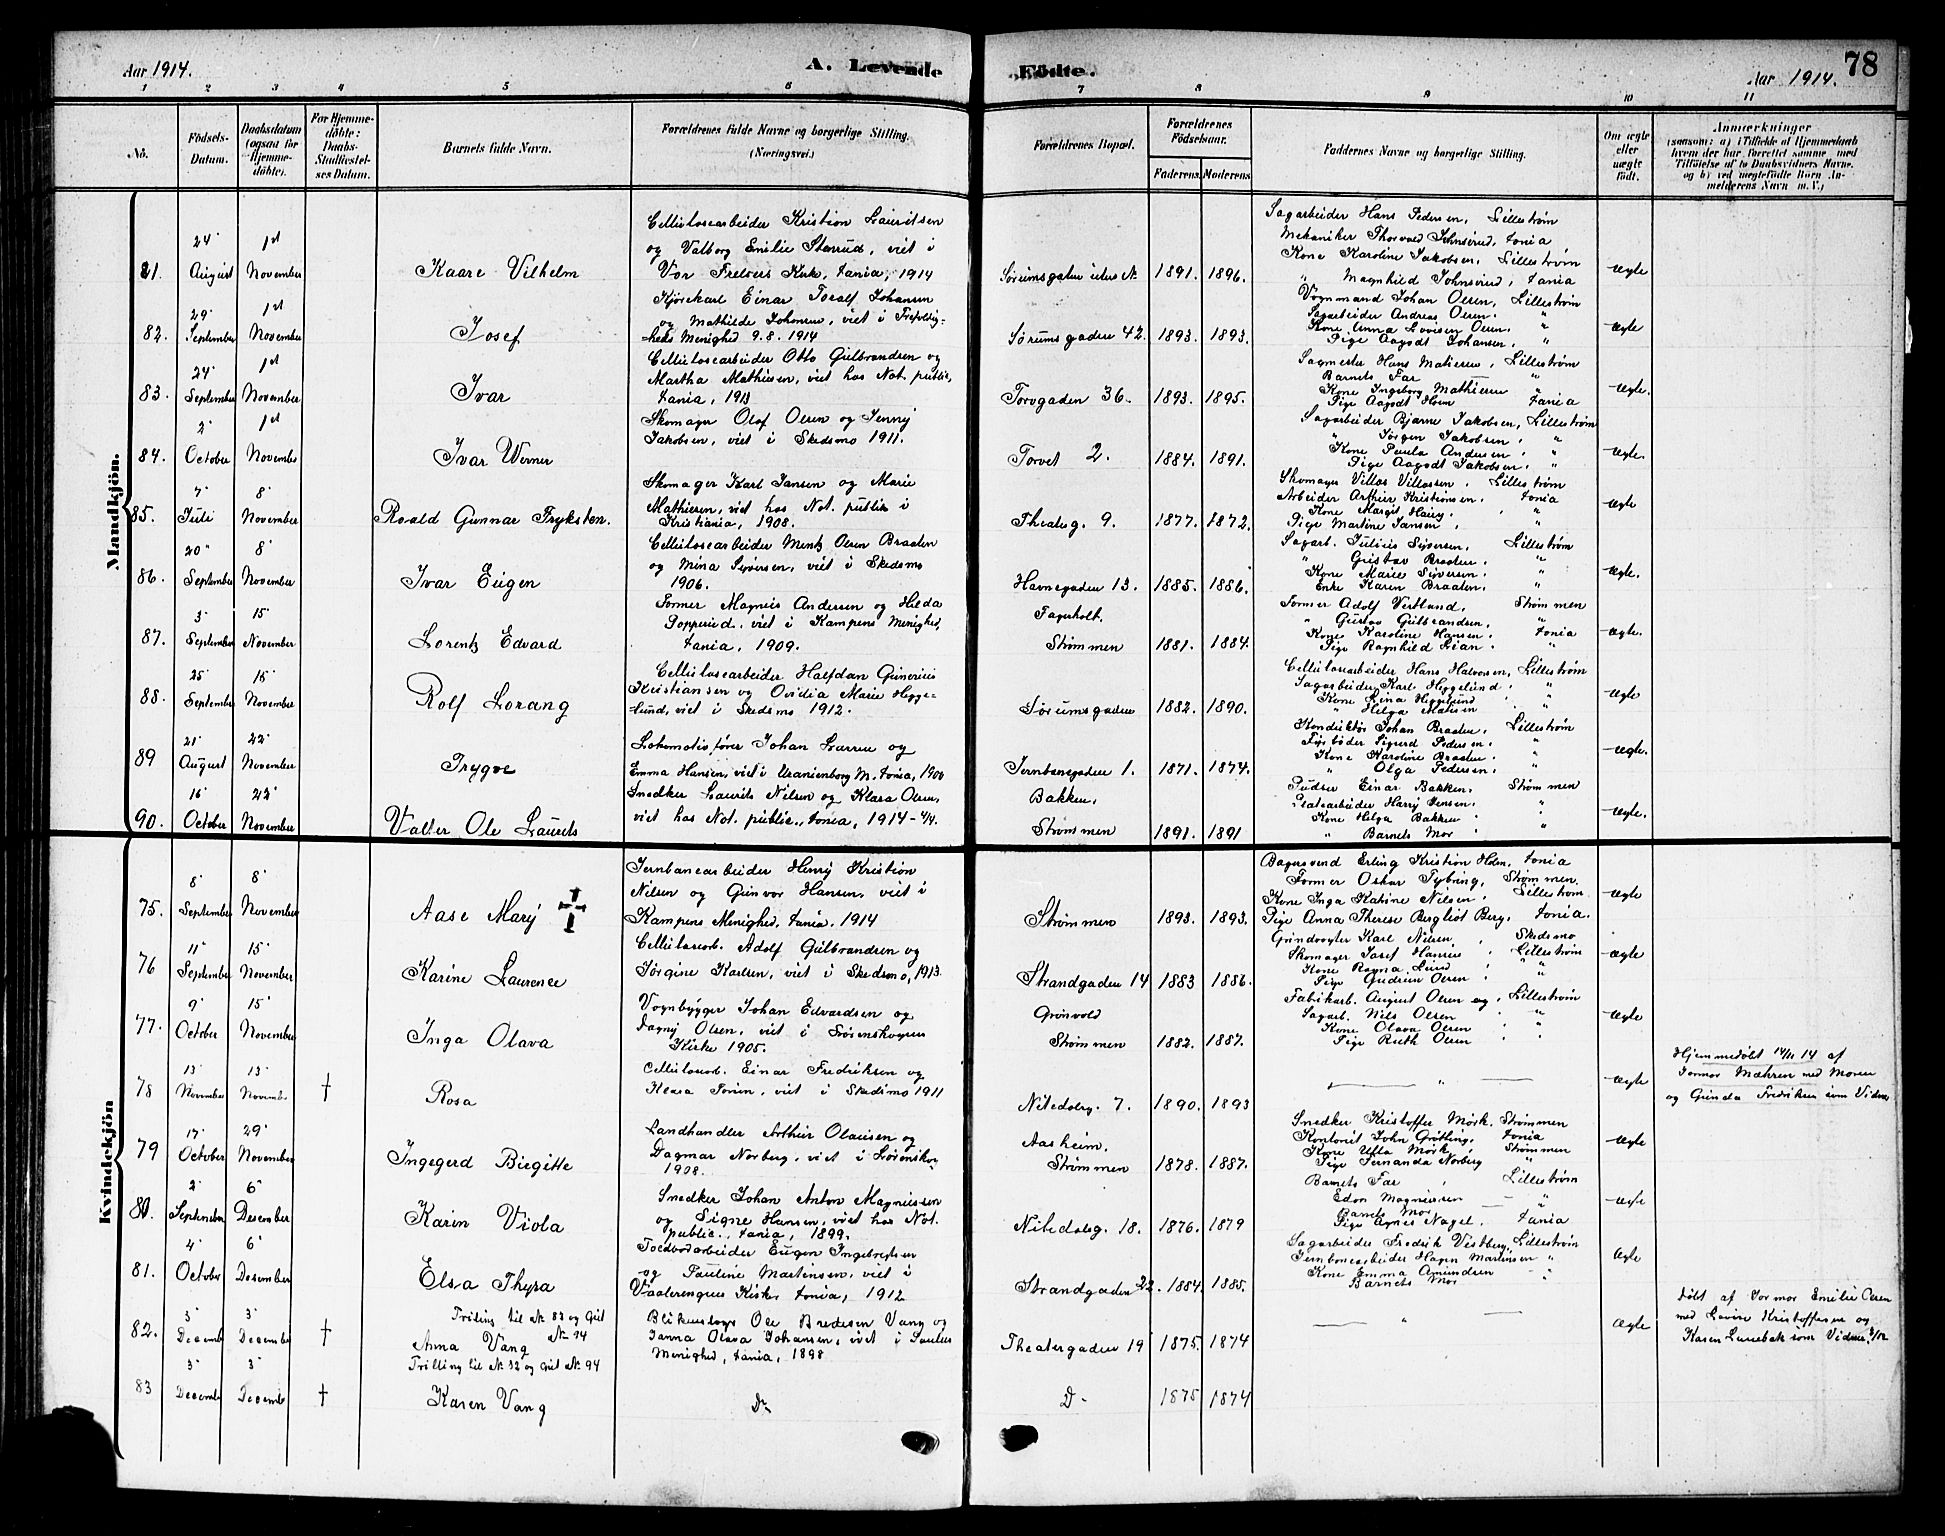 Aar 1914.
A. Levende Födte.
Aar 1914.
78
1 2 3 4 5 6 7 8 9 10 11
No.
Födsels-Datum.
Daabsdatum (ogsaa for Hjemme-döbte).
For Hjemme-döbte: Daabs-Stadfæstel-ses Datum.
Barnets fulde Navn.
Forældrenes fulde Navne og borgerlige Stilling. (Næringsvei.)
Forældrenes Bopæl.
Forældrenes Födselsaar.
Faderens. Moderens
Faddernes Navne og borgerlige Stilling.
Om ægte eller uægte födt.
Anmærkninger
(saasom: a) i Tilfælde af Hjemmedaab hvem der har forrettet samme med Tilföielse af to Daabsvidners Navne, og b) ved uægtefödte Börn An-melderens Navn m. V.)
Mandkjön.
81 24 August 1st November Kaare Vilhelm
Cellulosearbeider Kristian Lauritsen
og Valborg Emilie Starrud, viet i
Vor Frelsers Kirke, tania, 1914
1891. 1896.
Sagarbeider Hans Pedersen, Lillestrøm
Mekaniker Thorvald Johnsrud, tania
Kone Karoline Jakobsen, Lillestrøm
" Magnhild Johnsrud, tania
ægte
82. 29 September 1st November Josef
Kjørekarl Einar Toralf Johansen
og Mathilde Johansen, viet i Trefoldig-
heds Menighed 9.8.1914
Sørumsgaden 42. 1893. 1893.
Vognmand Johan Olsen, Lillestrøm
Sagarbeider Andreas Olsen, "
Kone Anna Lovisen Olsen, "
Pige Aagodt Johansen, "
ægte
83. 24 September 1st November Ivar
Cellulosearbeider Otto Gulbrandsen og
Martha Mathisen, viet hos Not. public,
tania, 1913
Torvgaden 36. 1893. 1895.
Sagmester Hans Matisen, Lillestrøm
Barnets Far — "
Kone Ingeborg Mathisen "
Pige Aagodt Holm tania
ægte.
84. 2 October 1st November Ivar Werner
Skomager Olaf Olsen og Jenny
Jakobsen, viet i Skedsmo 1911.
Torvet 2. 1884. 1891.
Sagarbeider Bjarne Jakobsen, Lillestrøm
" Jørgen Jakobsen, "
Kone Paula Andersen, "
Pige Aagodt Jakobsen, "
ægte.
85. 7 Juli 8 November Roald Gunnar Fryksten.
Skomager Karl Jansen og Marie
Mathisen, viet hos Not. public i
Kristiania, 1908.
Theaterg. 9. 1877. 1872.
Skomager Villas Villassen, Lillestrøm
Arbeider Arthur Kristiansen, tania
Kone Margit "
Pige Martine Jansen, "
ægte
86. 20 September 8 November Ivar Eugen
Cellulosearbeider Mentz Olsen Braaten
og Mina Syversen, viet i Skedsmo
1906.
Havnegaden 13. 1885. 1886.
Sagarb. Julius Syversen, Lillestrøm
" Gustav Braaten, "
Kone Marie Syversen, "
Enke Karen Braaten, "
ægte.
87. 3 September 15 November Lorentz Edvard
Former Magnus Andersen og Hilda
Popperud, viet i Kampens Menighed,
tania, 1909.
Fagerholt,
Strømmen 1881. 1884.
Former Adolf Vestlund, Strømmen
" Gustav Gulbrandsen, "
Kone Karoline Hansen, tania
Pige Ragnhild Lian, "
ægte.
88. 25 September 15 November Rolf Lorang
Cellulosearbeider Halfdan Gunerius
Kristiansen og Ovidia Marie Higge-
lund, viet i Skedsmo 1912.
Sørumsgaden 1882. 1890.
Cellulosearbeider Hans Halvorsen, Lillestrøm
Sagarbeider Karl Higgelund, "
Kone Lina Higgelund "
" Helga Matisen "
ægte
89 21 August 22 November Trygve
Lokomotivfører Johan Larsen og
Emma Hansen, viet i Uranienborg M. tania, 1900
Jernbanegaden 1. 1871. 1874.
Konduktør Johan Braaten, Lillestrøm
Fyrbøder Sigurd Pedersen, "
Kone Karoline Braaten, "
" Olga Pedersen, "
ægte.
90. 16 October 22 November Valter Ole Laurits
Snedker Laurits Nilsen og Klara Olsen,
viet hos Not. public., tania, 1914-4/4.
Bakken,
Strømmen 1891. 1891
Pudser Einar Bakken, Strømmen
Pladearbeider Harry Jensen, "
Kone Helga Bakken "
" Barnets Mor "
ægte.
Kvindekjön
75. 8 September 8 November Aase Mary
Jernbanearbeider Henry Kristian
Nilsen og Gunvor Hansen, viet i
Kampens Menighed, tania, 1914
Strømmen 1893. 1893.
Bagersvend Erling Kristian Holm, tania
Former Oskar Tybring, Strømmen
Kone Inga Katrine Nilsen, Lillestrøm
Pige Anna Therese Bergliot Berg, tania.
ægte
76 11 September 15 November Karine Laurence
Cellulosearb. Adolf Gulbrandsen og
Jørgine Karlsen, viet i Skedsmo, 1913.
Strandgaden 14 1883 1886.
Grindvogter Karl Nilsen, Skedsmo
Skomager Josef Lillestrøm
Kone Ragna Lund "
Pige Gudrun Olsen "
ægte
77. 9 October 15 November Inga Olava
Vognbygger Johan Edvardsen og
Dagny Olsen, viet i Lørenskogens
Kirke 1905.
Grønvold
Strømmen 1882. 1887.
Fabrikarb. August Olsen og, Lillestrøm
Sagarb. Nils Olsen "
Kone Olava Olsen "
Pige Ruth Olsen "
ægte
78 13 November 13 November † Rosa
Cellulosearb. Einar Fredriksen og
Klara viet i Skedsmo 1911
Nitedalsg. 7. 1890. 1893
— " —
ægte
Hjemmedøbt 14/11 14 af
Jormor Mæhren med Moren
og Gunda Fredriksen som Vidner
79 17 October 29 November Ingegerd Birgitte
Landhandler Arthur Olausen og
Dagmar Norberg, viet i Lørenskog
1908.
Aasheim,
Strømmen 1878. 1887.
Snedker Kristoffer Mørk, Strømmen
Kontorist John Grøtling, tania
Kone Ulla Mørk, Strømmen
Pige Fernanda Norberg "
ægte
80. 2 September 6 Desember Karin Viola
Snedker Johan Anton Magnussen
og Signe Hansen, viet hos Not.
public., tania, 1899.
Nitedalsg. 18. 1876. 1879
Barnets Far, Lillestrøm
Edon Magnussen — "
Barnets Mor "
Pige Agnes Nagel, tania
ægte
81. 4 October 6 Desember Elsa Thyra
Eugen Ingebretsen
og Pauline Martinsen, viet i
Vaalerengens Kirke, tania, 1912
Strandgaden 22. 1884. 1885.
Sagarbeider Fredrik Vestberg, Lillestrøm
Jernbanearbeider Hagen Martinsen "
Kone Emma Amundsen "
Barnets Mor "
ægte
82. 3 Decemb 3 Desember †
Trilling til Nr. 83 og Gut Nr. 94
Anna Vang
Blikenslager Ole Bredesen Vang og
Janna Olava Johansen, viet i Paulus
Menighed, tania, 1898
Theatergaden 19 1875. 1874
" —
ægte
døbt af Jormor Emilie Olsen
med Lovise Kristoffersen og
Karen som Vidner.
83 3 Decemb 3 Decemb †
Trilling til Nr. 82 og Gut Nr. 94
Karen Vang
Do
Do 1875 1874